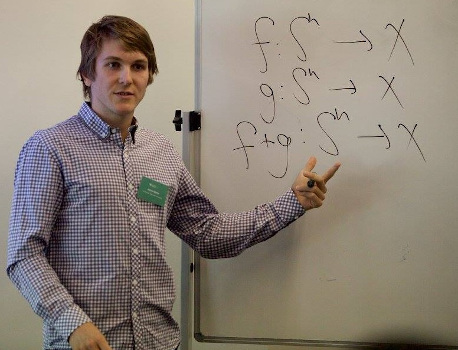 f: Sⁿ → X
g: Sⁿ → X
f+g: Sⁿ → X